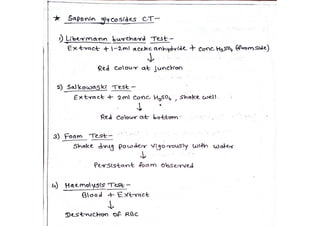 * Saponin glycosides CT -
1) Libermann burchard Test -
Extract + 1-2ml acetic anhydride + conc H₂SO₄ (from side)
↓
Red colour at junction
2) Salkowaski Test -
Extract + 2ml conc. H₂SO₄, shake well.
↓
Red colour at bottom.
3) Foam Test -
Shake drug powder vigorously with water
↓
Persistant foam observed
4) Haemolysis Test -
Blood + Extract
↓
Destruction of RBC